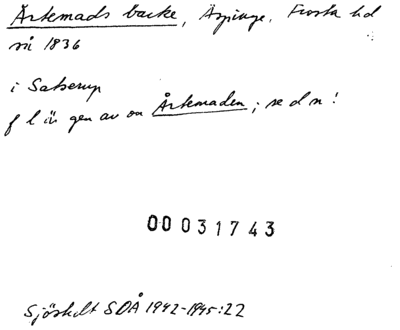 Årtemads backe, Äspinge, Frosta hd
så 1836
i Satserup
f l är gen av on Årtemaden; se d n!
00 031743
Sjöskelt SOÅ 1942-1945:22